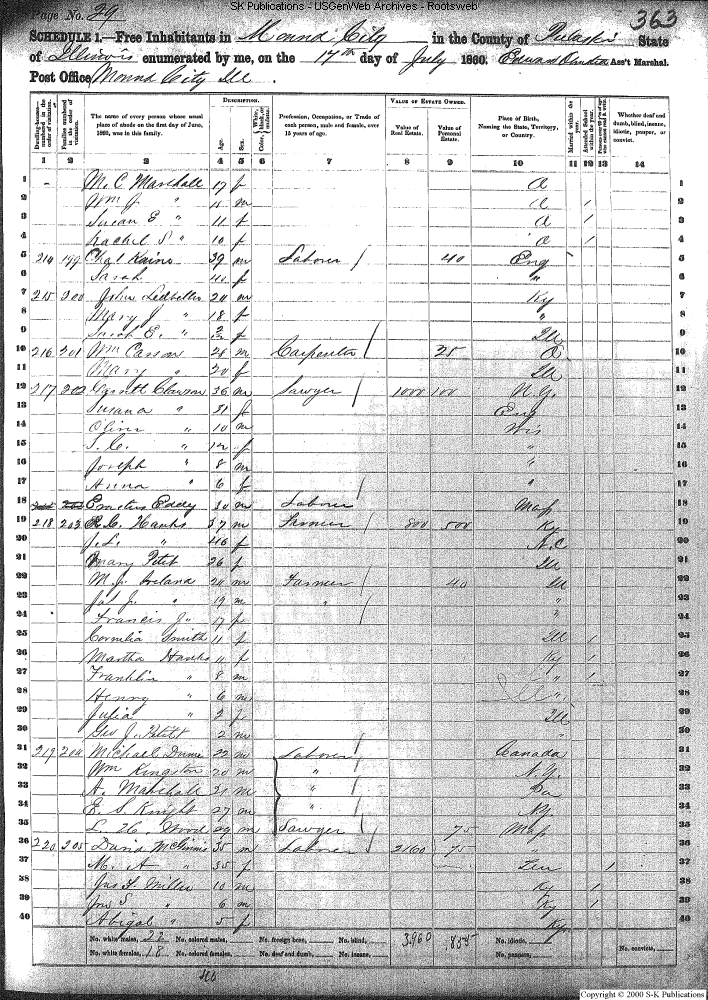 SK Publications - USGenWeb Archives - Rootsweb
Page No. 29
363
SCHEDULE 1.—Free Inhabitants in Mound City in the County of Pulaski State
of Illinois enumerated by me, on the 17th day of July 1860. Ass't Marshal.
Post Office Mound City Ill.
DESCRIPTION. VALUE OF ESTATE OWNED.
Dwelling-houses—numbered in the order of visitation. Families numbered in the order of visitation. The name of every person whose usual place of abode on the first day of June, 1860, was in this family. Age. Sex. Color, White, black, or mulatto. Profession, Occupation, or Trade of each person, male and female, over 15 years of age. Value of Real Estate. Value of Personal Estate. Place of Birth, Naming the State, Territory, or Country. Married within the year. Attended School within the year. Persons over 20 y'rs of age who cannot read & write. Whether deaf and dumb, blind, insane, idiotic, pauper, or convict.
1 2 3 4 5 6 7 8 9 10 11 12 13 14
1 M. C. Marshall 17 f O 1
2 Wm J. " m O / 2
3 Susan E " 11 f O / 3
4 Rachel S " 10 f O / 4
5 214 199 Chas Kains 39 m Laborer / 40 Eng 5
6 Sarah f " 6
7 215 200 John Ledbetter 20 m Ky 7
8 Mary J " 18 f " 8
9 Sarah E. " f Ill 9
10 216 201 Wm Casson 28 m Carpenter / 25 O 10
11 Mary " 20 f Ill 11
12 217 202 Clawson 36 m Sawyer / 1000 100 N.Y. 12
13 Susana " 31 f Eng 13
14 Oliver " 10 m Wis 14
15 " f " 15
16 Joseph " 8 m " 16
17 Anna " 6 f " 17
18 Erastus Eddy 30 m Laborer Mass 18
19 218 203 R. C. Hanks 37 m Farmer / 800 500 Ky 19
20 J. L. " 46 f N.C 20
21 Mary Petit 26 f Ill 21
22 M. J. Ireland 20 m Farmer / 40 Ill 22
23 Jas J. " 19 m " / " 23
24 Francis J. " 17 f " 24
25 Cornelia Smith 11 f Ill / 25
26 Martha Hanks 11 f Ky / 26
27 Franklin " 8 m " / 27
28 Henry " 6 m Ill 28
29 Julia " 2 f Ill 29
30 Geo J. Petit 2 m " 30
31 219 204 Michael Dunn 22 m Laborer / Canada 31
32 Wm Kingston 20 m " / N.Y. 32
33 A. Marshall 31 m " / Pa 33
34 E. S. Knight 27 m " / NY 34
35 Wood 29 m Sawyer 75 Mass 35
36 220 205 David McGinnis 35 m Laborer / 2160 75 " 36
37 M. A " 35 f Ten / 37
38 Jas F. Miller 10 m Ky / 38
39 Jno S " 6 m Ky / 39
40 Abigal " 5 f Ky 40
No. white males, 22 No. colored males, No. foreign born, No. blind, 3,960 855 No. idiotic,
No. white females, 18 No. colored females, No. deaf and dumb, No. insane, No. paupers, No. convicts,
Copyright © 2000 S-K Publications